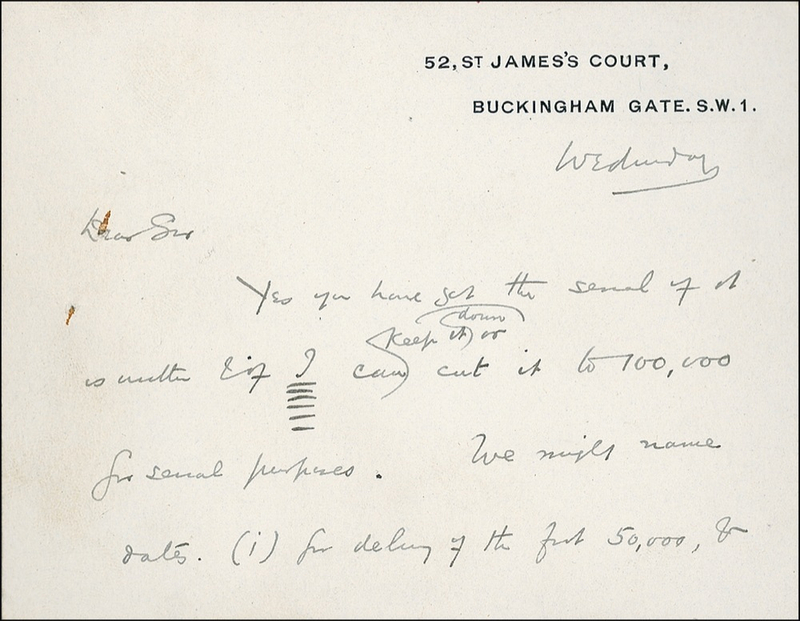 52, ST JAMES'S COURT,
BUCKINGHAM GATE. S.W.1.
Wednesday
Dear Sir
Yes you have got the serial if it
keep it down or
is written & if I can cut it to 100,000
for serial purposes. We might name
dates. (1) for delivery of the first 50,000, &